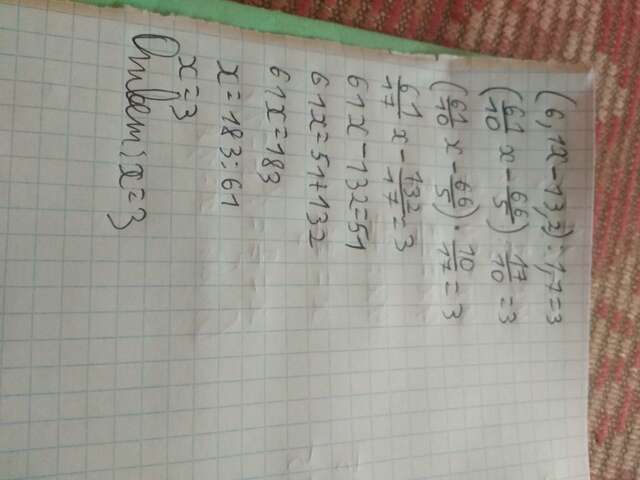 (6,1x-13,2):1,7=3
(61/10 x - 66/5) : 17/10 =3
(61/10 x - 66/5) · 10/17 = 3
61/17 x - 132/17 = 3
61x-132=51
61x=51+132
61x=183
x=183:61
x=3
Ответ: x=3